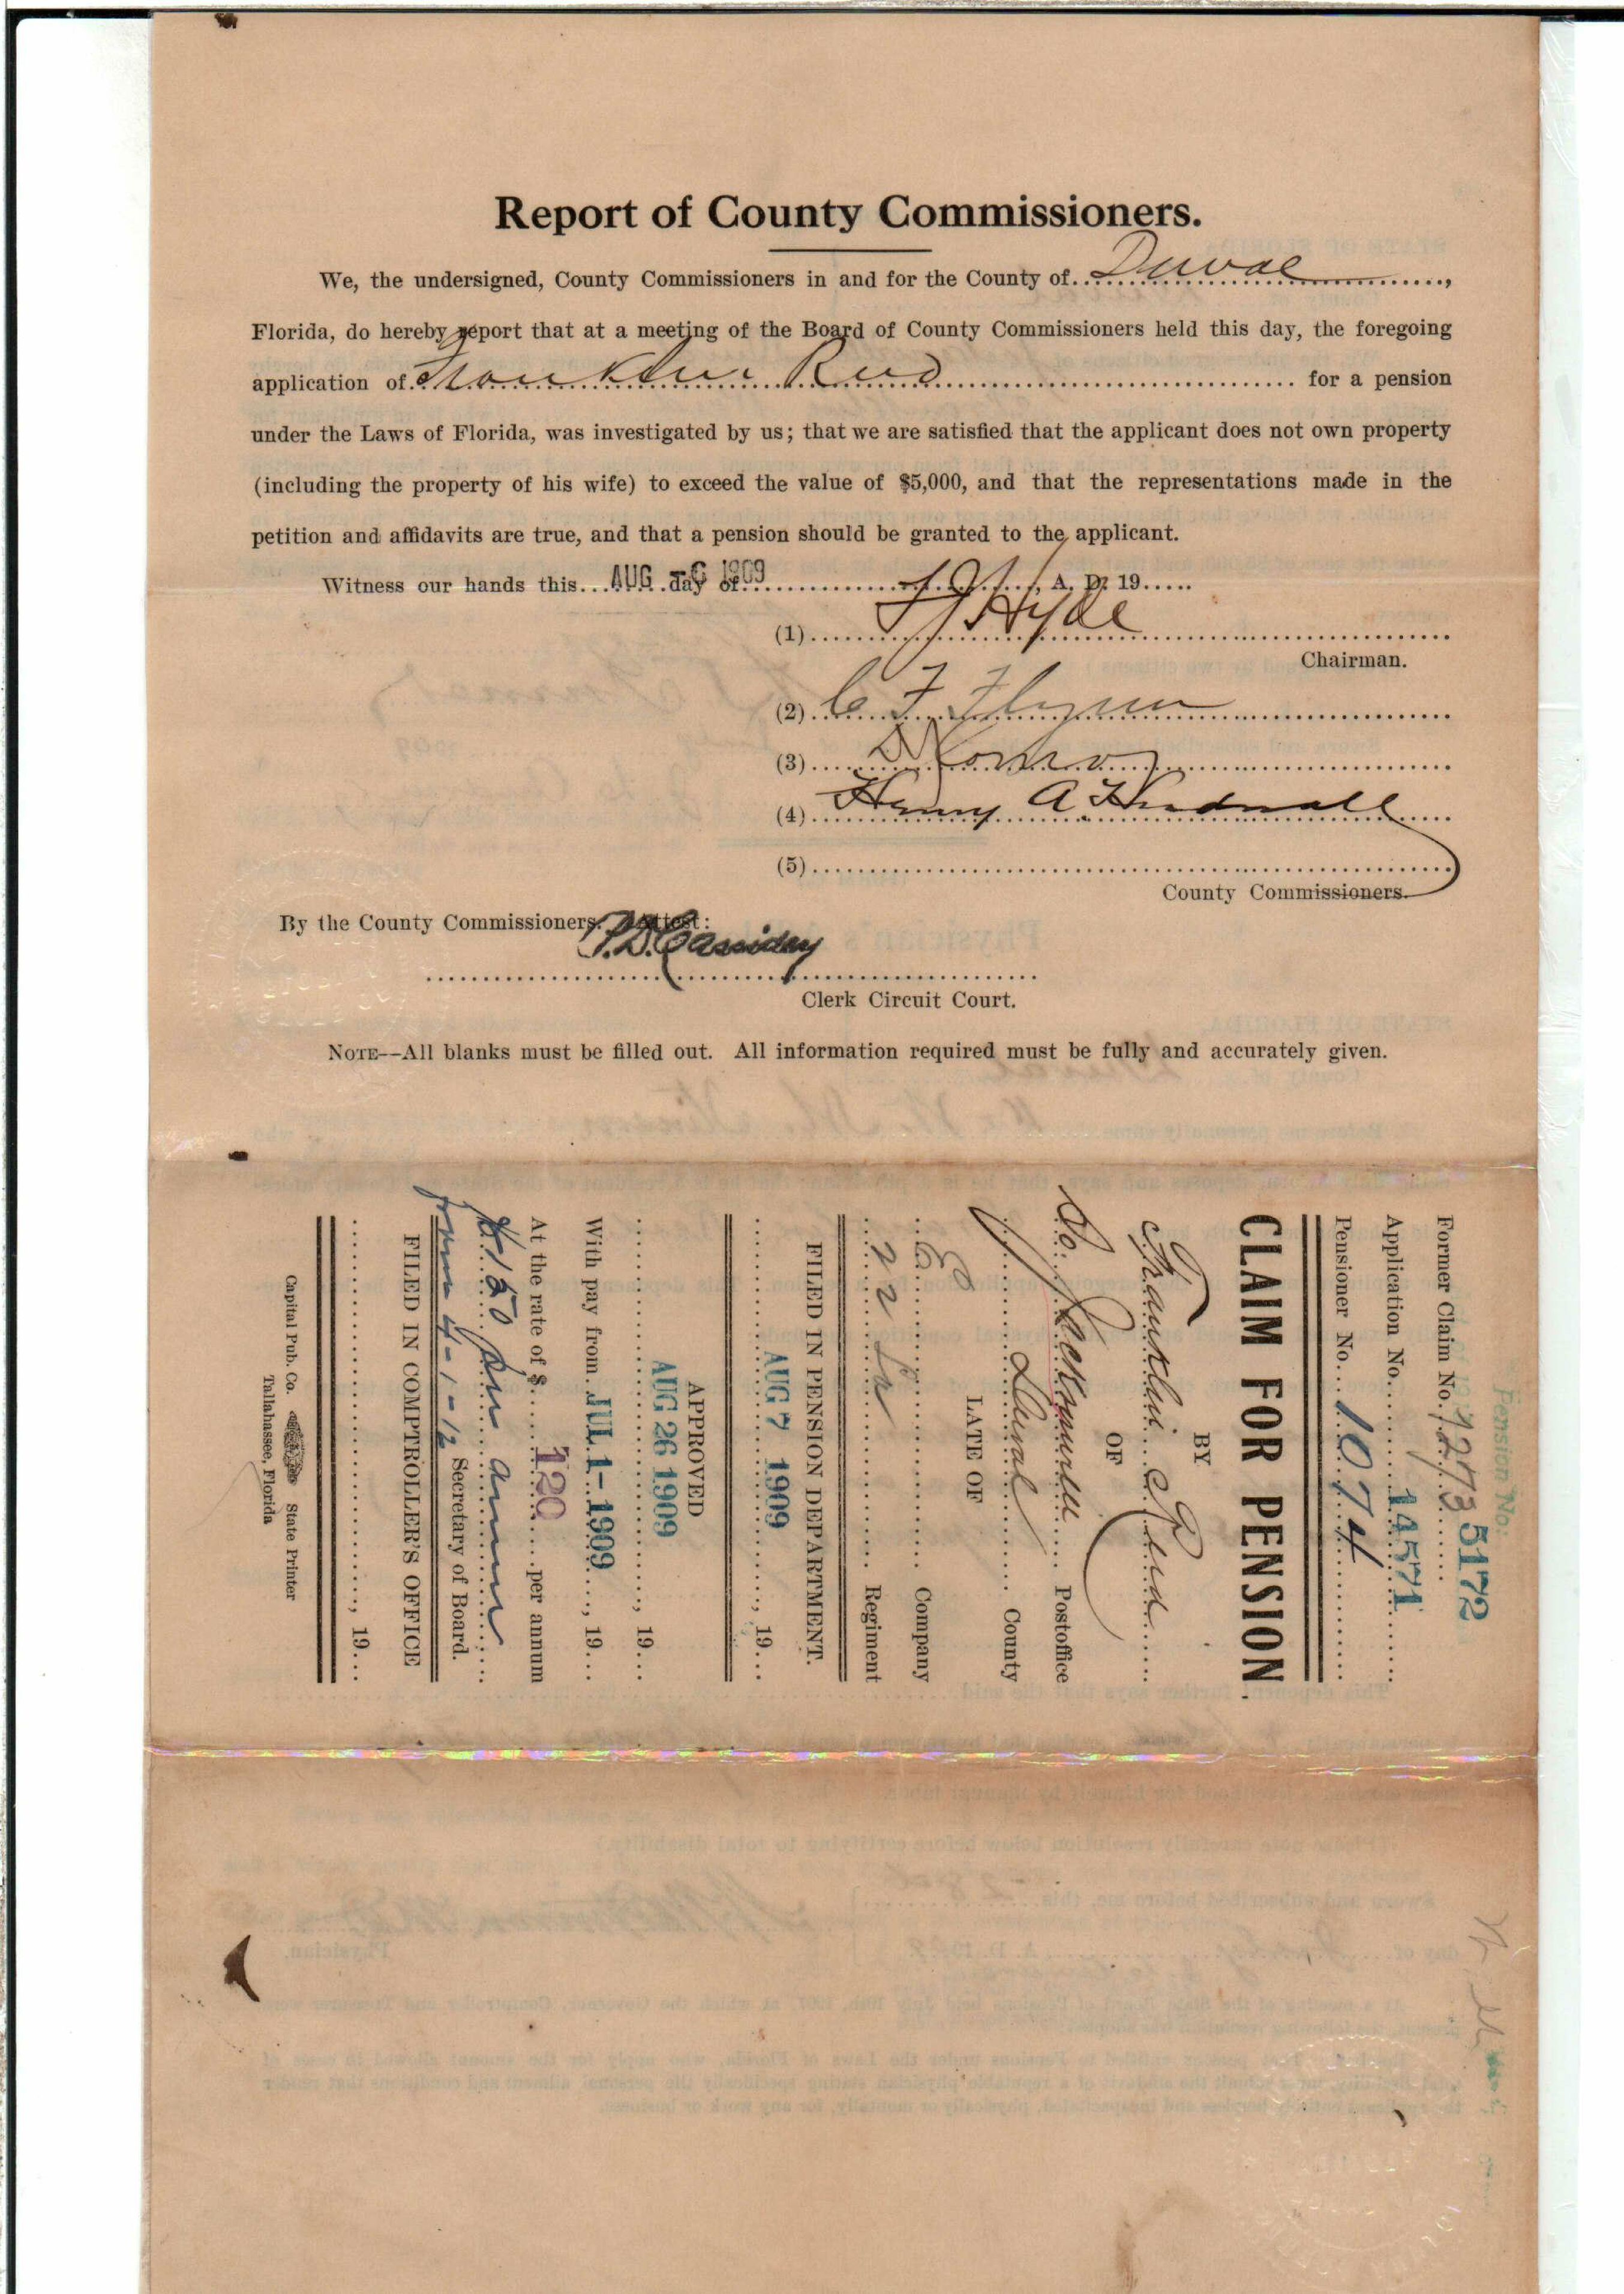 Report of County Commissioners.
We, the undersigned, County Commissioners in and for the County of Duval,
Florida, do hereby report that at a meeting of the Board of County Commissioners held this day, the foregoing
application of Franklin Reed for a pension
under the Laws of Florida, was investigated by us; that we are satisfied that the applicant does not own property
(including the property of his wife) to exceed the value of $5,000, and that the representations made in the
petition and affidavits are true, and that a pension should be granted to the applicant.
Witness our hands this AUG -6 1909 day of A. D. 19
(1) Hyde
Chairman.
(2) C F Flynn
(3)
(4) Henry A. Hudnall
(5)
County Commissioners.
By the County Commissioners. Attest:
P. D. Cassidey
Clerk Circuit Court.
NOTE--All blanks must be filled out. All information required must be fully and accurately given.
Pension No. 5172
Former Claim No. 1273
Application No. 14571
Pensioner No. 1074
CLAIM FOR PENSION
BY
Franklin Reed
OF
So. Jacksonville Postoffice
Duval County
LATE OF
Company
22 Regiment
FILED IN PENSION DEPARTMENT.
AUG 7 1909, 19
APPROVED
AUG 26 1909, 19
With pay from JUL 1 - 1909, 19
At the rate of $ 120 per annum
$150 per annum
from 4-1-12 Secretary of Board.
FILED IN COMPTROLLER'S OFFICE
, 19
Capital Pub. Co. State Printer
Tallahassee, Florida